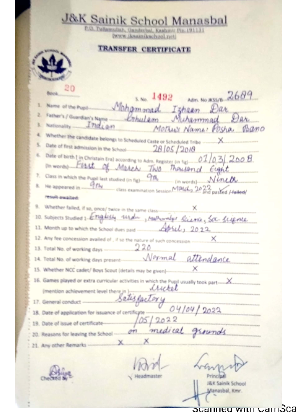 J&K Sainik School Manasbal
P.O. Safapora, Ganderbal, Kashmir Pin.191131
TRANSFER CERTIFICATE
Book 20
S. No. 1492 Adm. No 2689
1. Name of the Pupil Mohammad Dar
2. Father's / Guardian's Name Ghulam Mohammad Dar
3. Nationality Indian Mother's Name: Bano
4. Whether the candidate belongs to Scheduled Caste or Scheduled Tribe X
5. Date of first admission in the School 28/05/2018
6. Date of birth (In Christian Era) according to Adm. Register (in fig) 01/03/2008
(in words) First of March Two Thousand Eight
7. Class in which the Pupil last studied (in fig) 9th (in words) Nineth
8. He appeared in 9th class examination session March, 2022 and passed / failed
9. Whether failed, if so, once/ twice in the same class X
10. Subjects Studied : English, Urdu, Mathematics, Science, Soc Science
11. Month up to which the School dues paid April, 2022
12. Any fee concession availed of, if so the nature of such concession X
13. Total No. of working days 220
14. Total No. of working days present Normal attendance
15. Whether NCC cadet/ Boys Scout (details may be given) X
16. Games played or extra curricular activities in which the Pupil usually took part X
(mention achievement level there in) Cricket
17. General conduct Satisfactory
18. Date of application for issuance of certificate 04/04/2022
19. Date of issue of certificate /05/2022
20. Reasons for leaving the School on medical grounds
21. Any other Remarks X X
Checked by
Headmaster
Principal
J&K Sainik School
Manasbal, Kmr
Scanned with CamSca